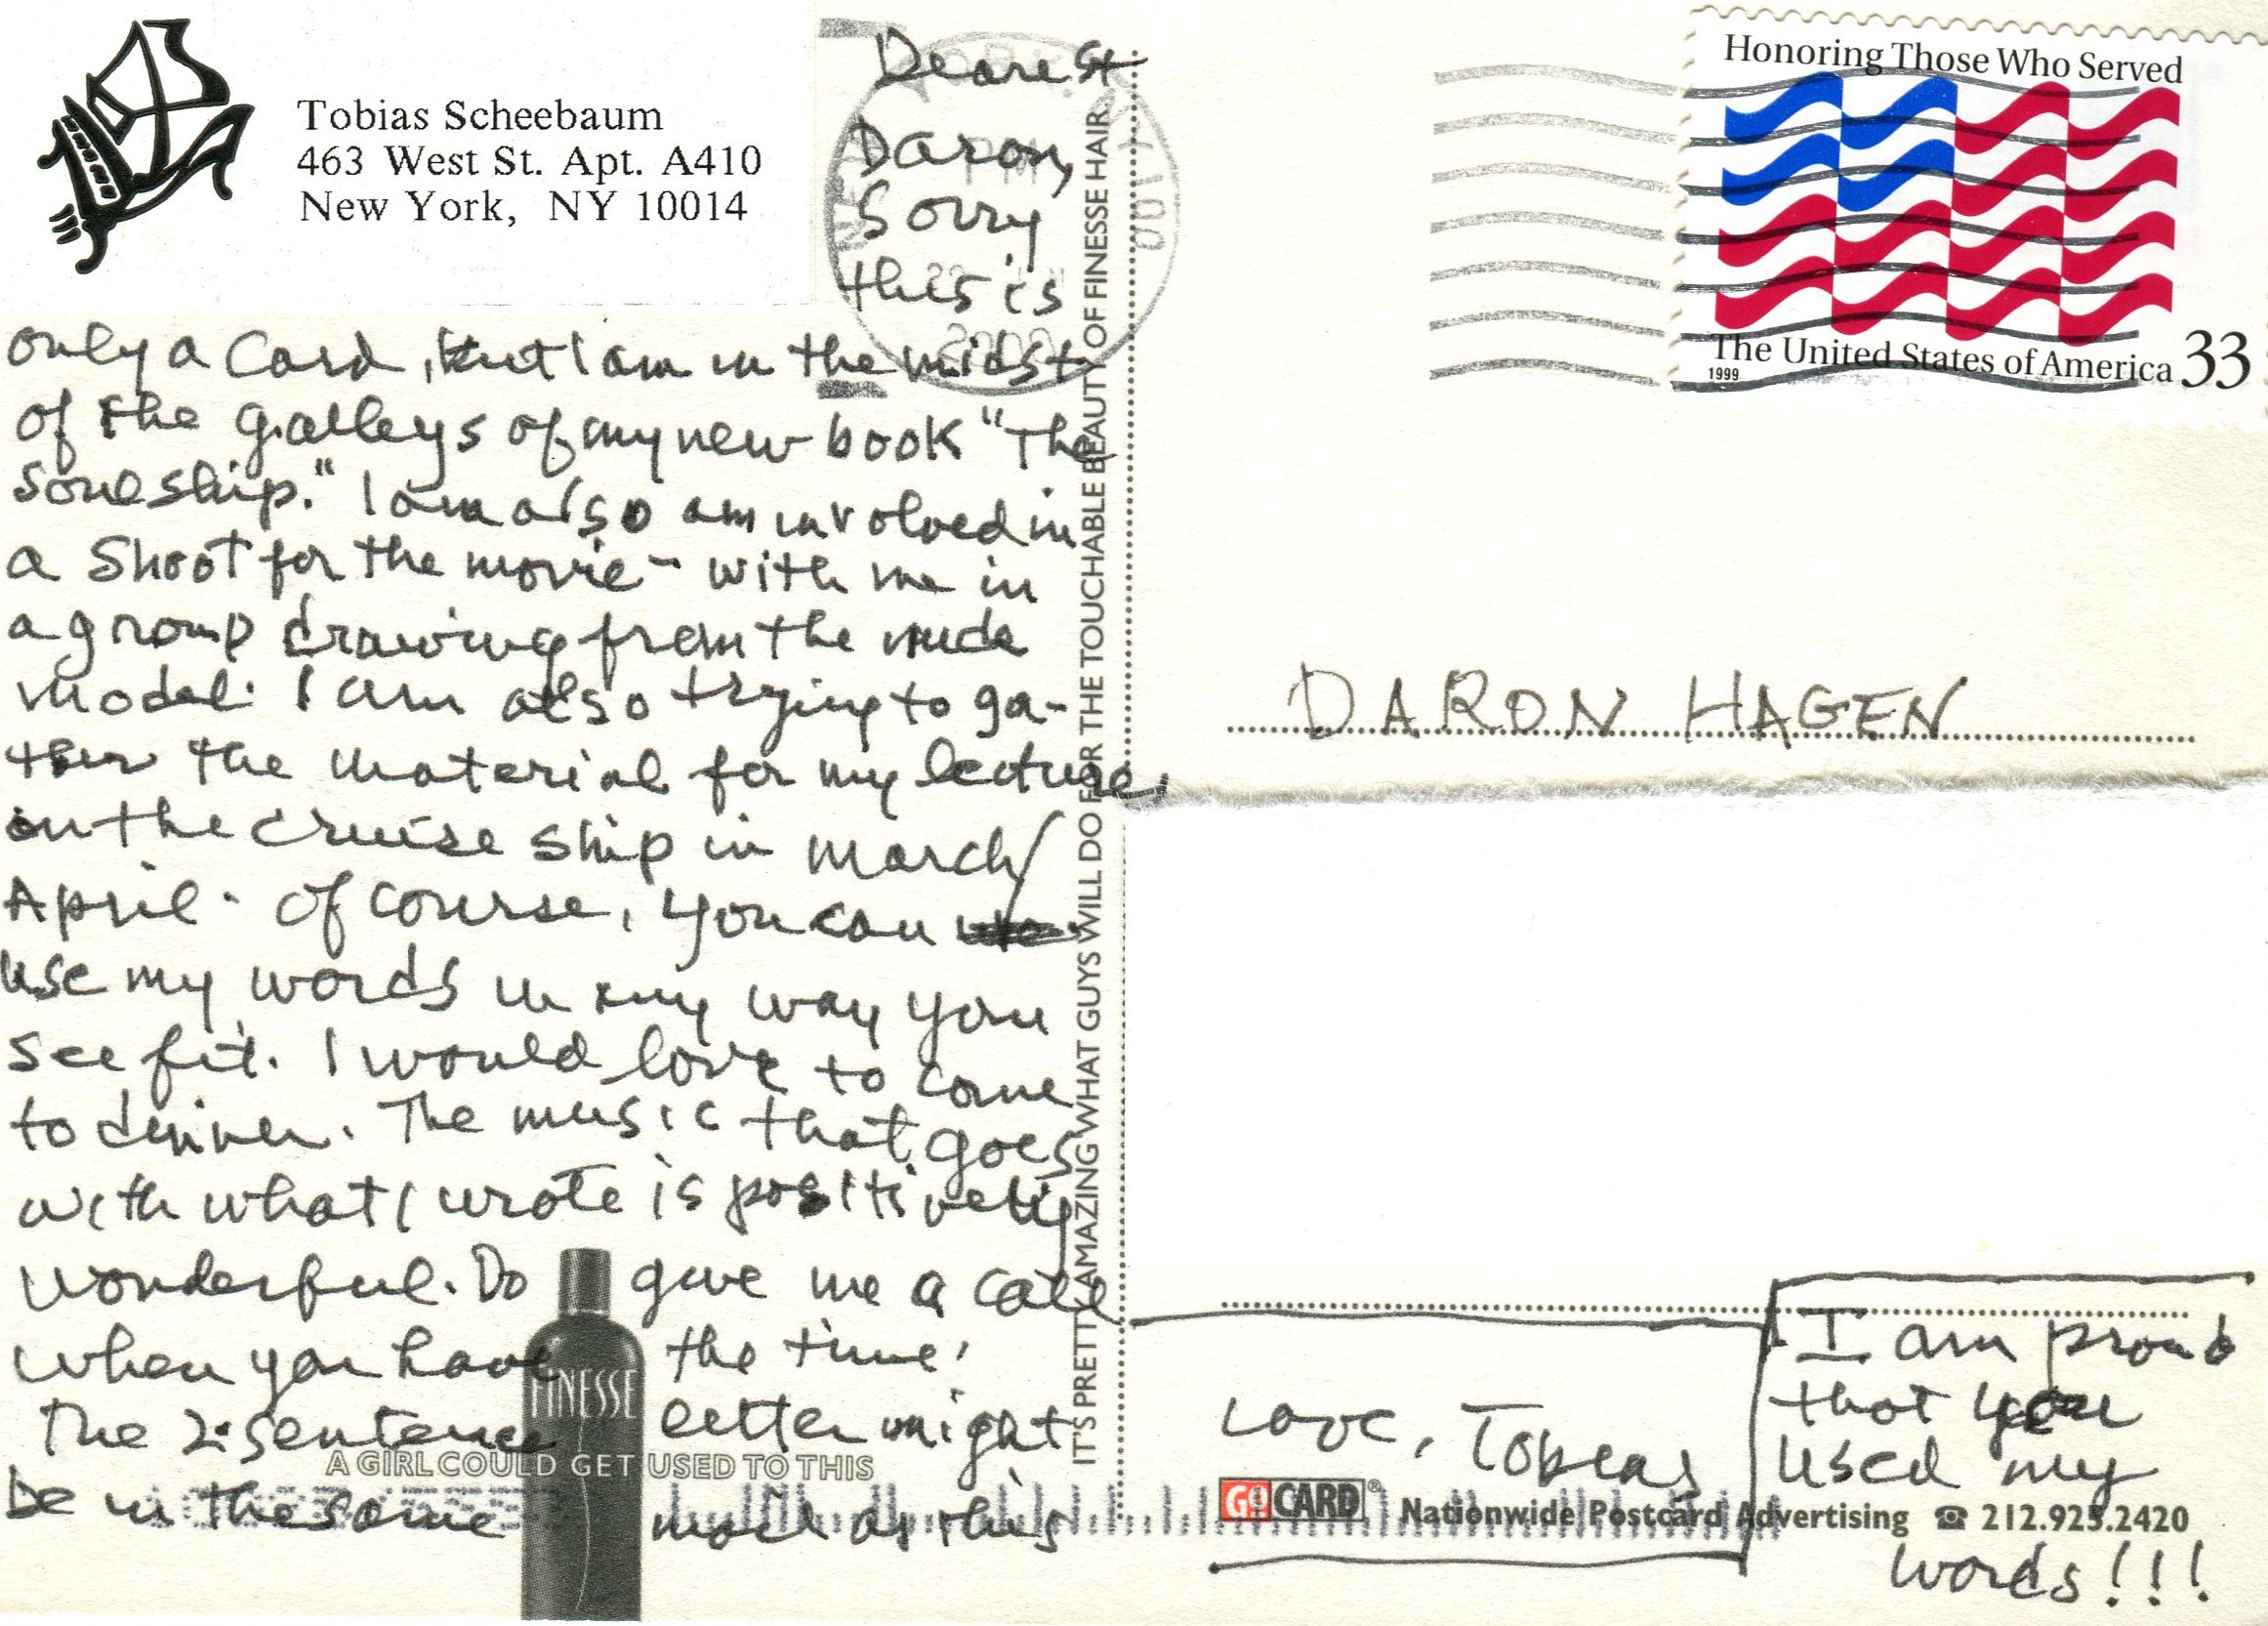 Tobias Scheebaum
463 West St. Apt. A410
New York, NY 10014
Dearest
Daron,
Sorry
this is
only a card, but I am in the midst
of the galleys of my new book "The
Soulship." I am also am involved in
a shoot for the movie - with me in
a group drawing from the nude
model. I am also trying to ga-
ther the material for my lecture,
on the cruise ship in March/
April. Of course, you can
use my words in any way you
see fit. I would love to come
to dinner. The music that goes
with what I wrote is positively
wonderful. Do give me a call
when you have the time!
The 2-sentence letter might
be in the same mail as this
FINESSE
A GIRL COULD GET USED TO THIS
IT'S PRETTY AMAZING WHAT GUYS WILL DO FOR THE TOUCHABLE BEAUTY OF FINESSE HAIR
2000
Honoring Those Who Served
The United States of America 33
1999
DARON HAGEN
Love, Tobias
I am proud
that you
used my
words!!!
GOCARD® Nationwide Postcard Advertising ☎ 212.925.2420